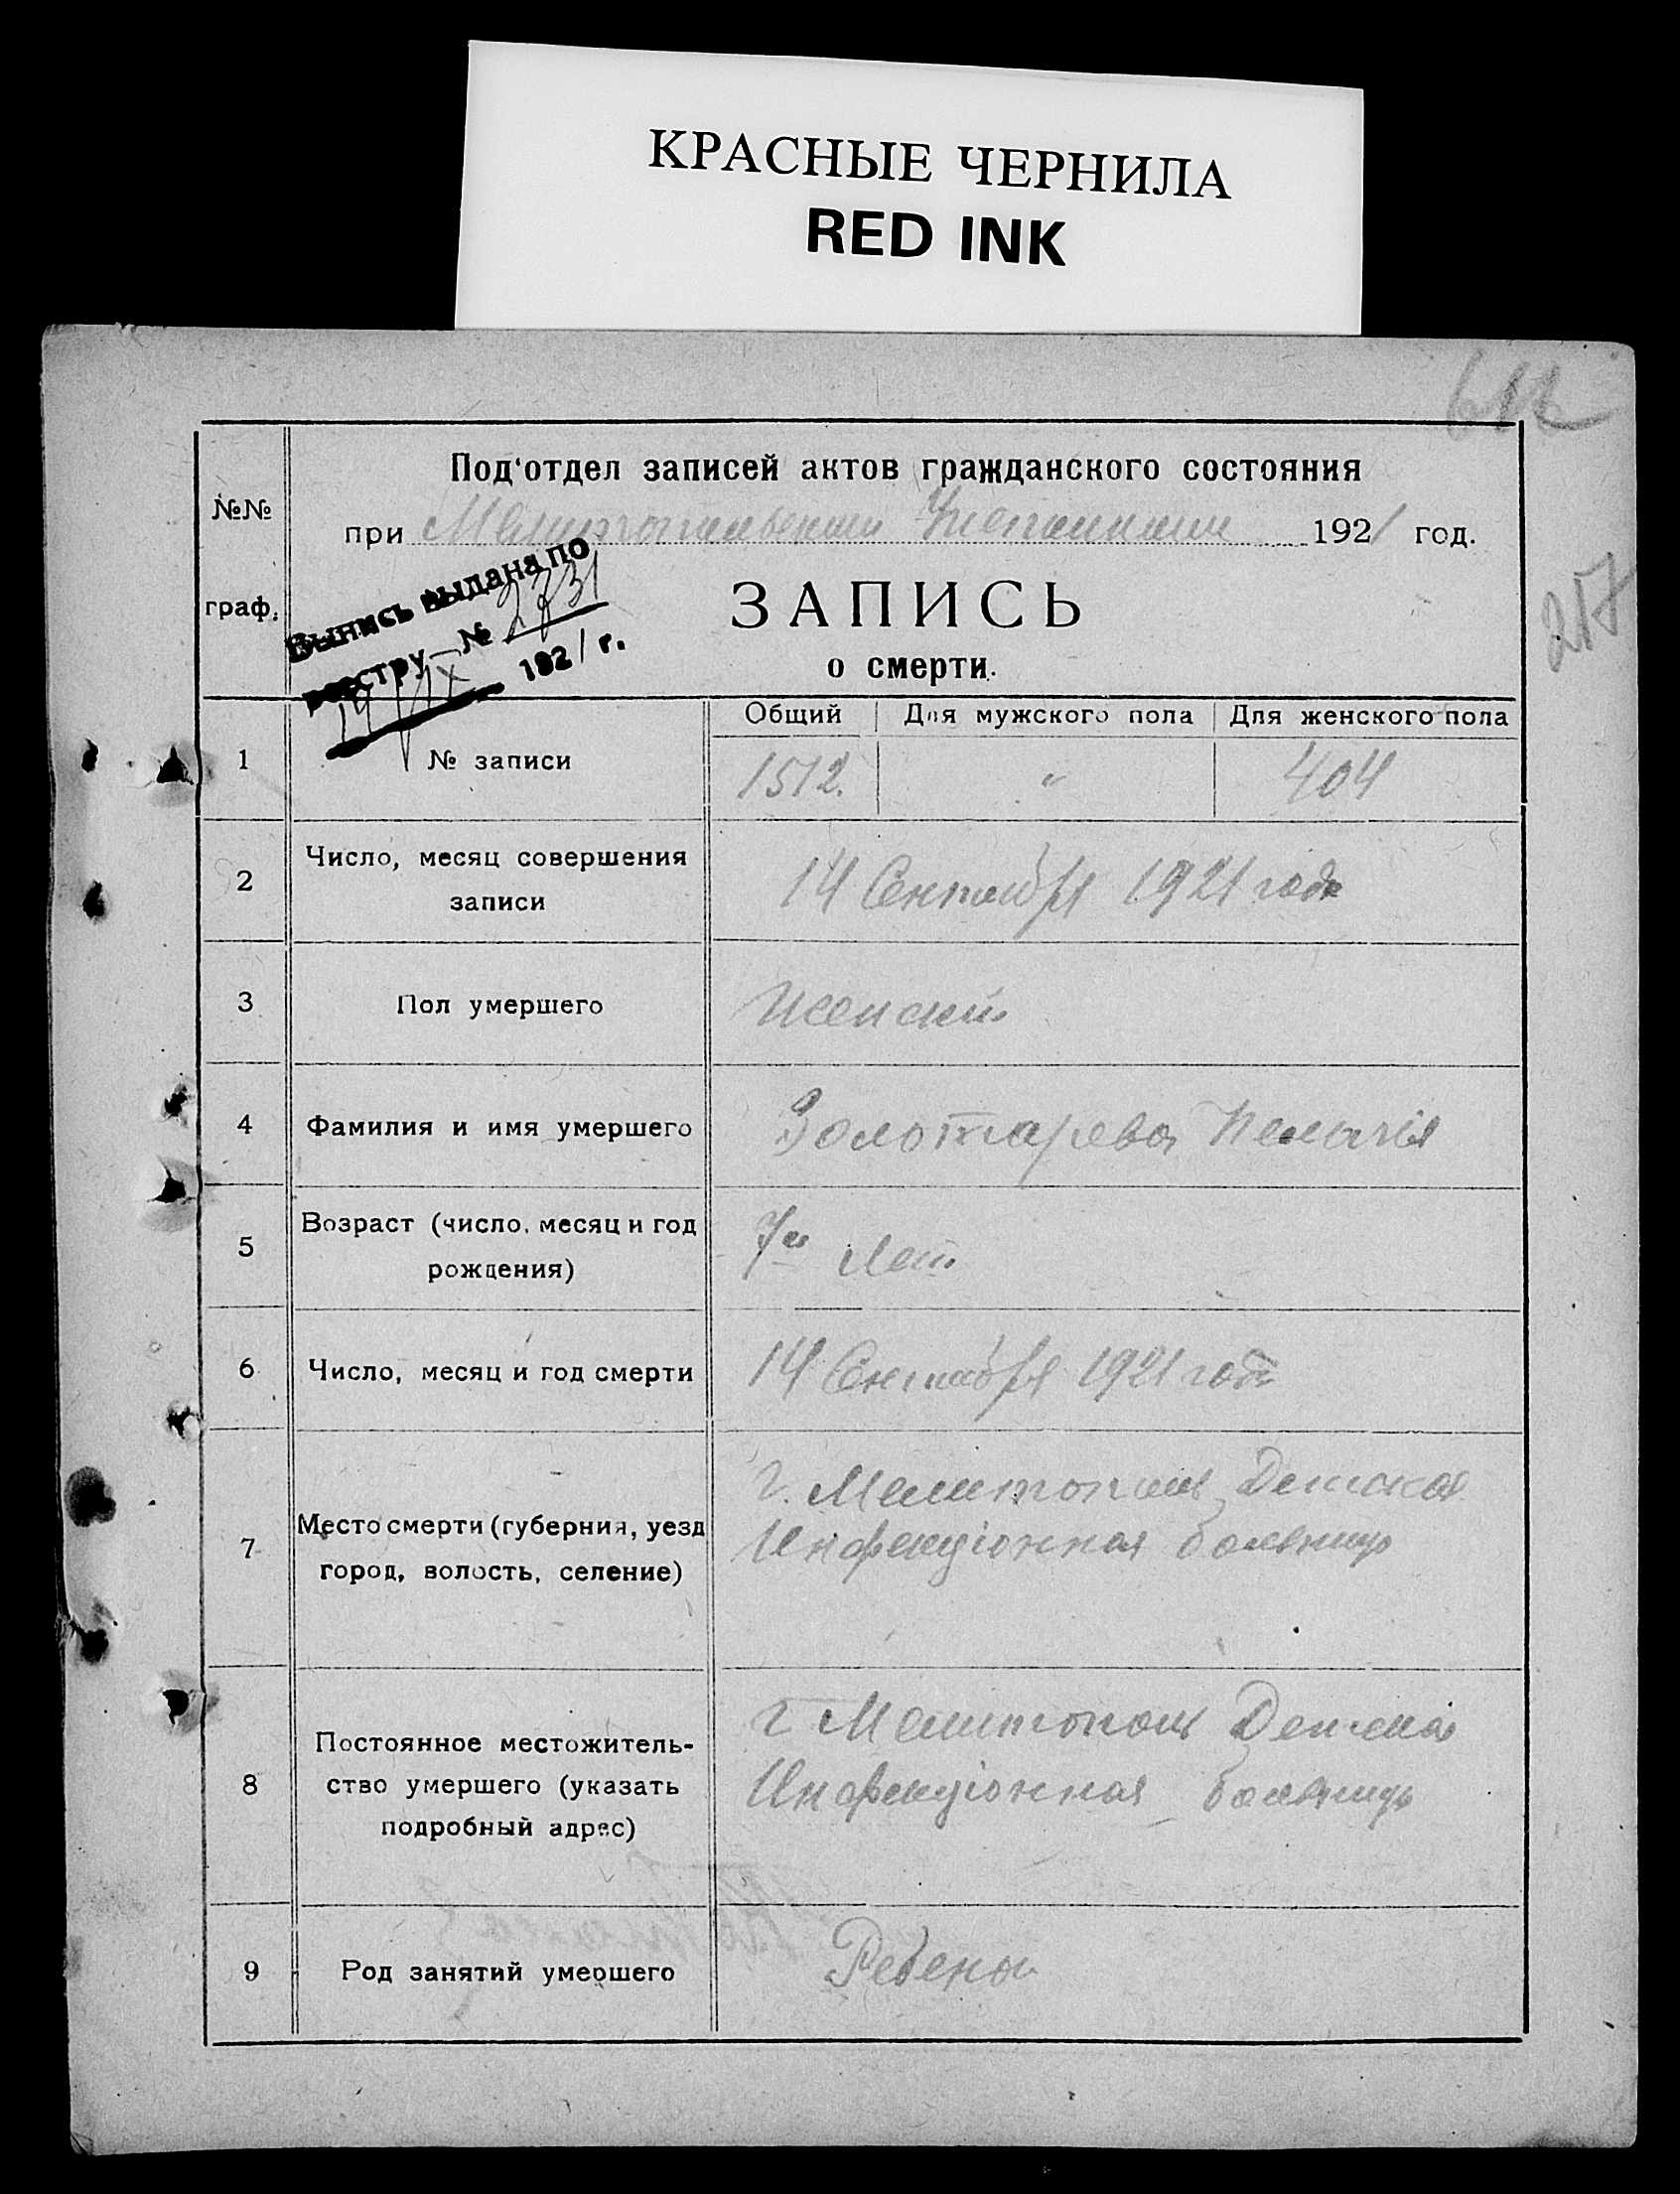 КРАСНЫЕ ЧЕРНИЛА
RED INK
612
№№
граф.
Под'отдел записей актов гражданского состояния
при Мелитопольском 1921 год.
217
ЗАПИСЬ
о смерти.
Выпись выдана по
реестру № 2731
19/IX 1921 г.
Общий Для мужского пола Для женского пола
1 № записи 1512. " 404
2 Число, месяц совершения
записи
14 Сентября 1921 года
3 Пол умершего Женский
4 Фамилия и имя умершего Золотарева Пелагія
5 Возраст (число, месяц и год
рождения)
7и лет
6 Число, месяц и год смерти 14 Сентября 1921 года
7 Место смерти (губерния, уезд
город, волость, селение)
г. Мелитополь Детская
Инфекціонная больница
8 Постоянное местожитель-
ство умершего (указать
подробный адрес)
г Мелитополь Детская
Инфекціонная больница
9 Род занятий умершего Ребенок